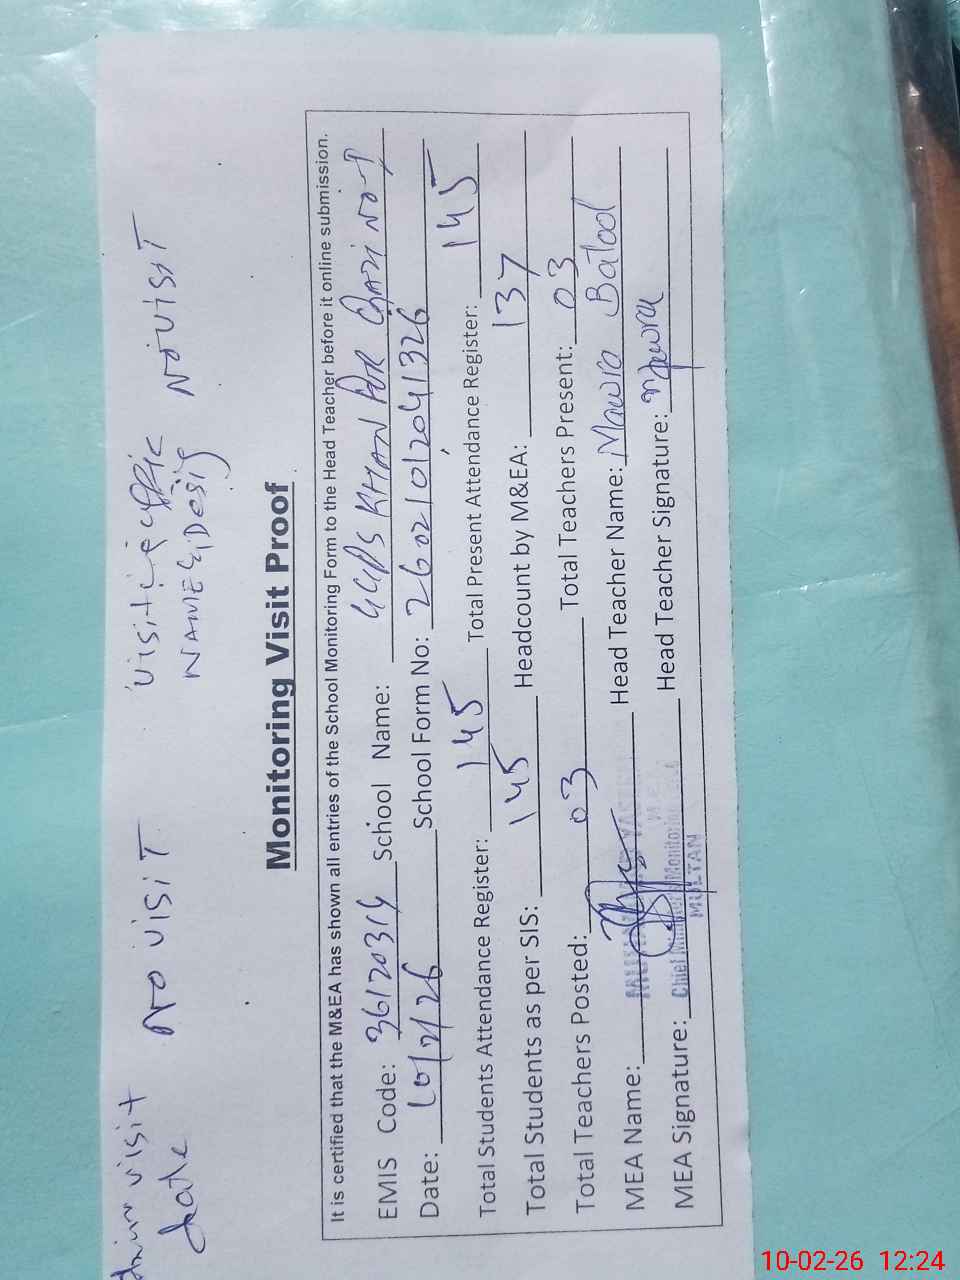 Admin visit NO VISIT Visiting offic NO VISIT
date NAME & Desig
Monitoring Visit Proof
It is certified that the M&EA has shown all entries of the School Monitoring Form to the Head Teacher before it online submission.
EMIS Code: 36120314 School Name: GGPS KHAN PUR QAZI NO-1
Date: 10/2/26 School Form No: 2602/01/2041326
Total Students Attendance Register: 145 Total Present Attendance Register: 145
Total Students as per SIS: 145 Headcount by M&EA: 137
Total Teachers Posted: 03 Total Teachers Present: 03
MEA Name: Head Teacher Name: Mawra Batool
MEA Signature: Chief Monitoring MULTAN Head Teacher Signature: Mawra
10-02-26 12:24